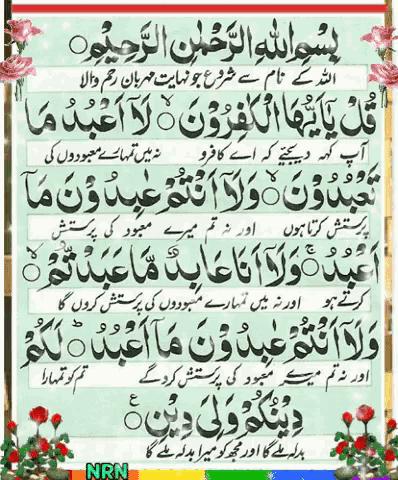 بِسْمِ اللهِ الرَّحْمٰنِ الرَّحِيْمِ ○
اللہ کے نام سے شروع جو نہایت مہربان رحم والا
قُلْ يٰٓاَيُّهَا الْكٰفِرُوْنَ ○ۙ لَآ اَعْبُدُ مَا
آپ کہہ دیجئے کہ اے کافرو نہ میں تمہارے معبودوں کی
تَعْبُدُوْنَ ○ۙ وَلَآ اَنْتُمْ عٰبِدُوْنَ مَآ
پرستش کرتا ہوں اور نہ تم میرے معبود کی پرستش
اَعْبُدُ ○ۚ وَلَآ اَنَا عَابِدٌ مَّا عَبَدْتُّمْ ○ۙ
کرتے ہو اور نہ میں تمہارے معبودوں کی پرستش کروں گا
وَلَآ اَنْتُمْ عٰبِدُوْنَ مَآ اَعْبُدُ ○ؕ لَكُمْ
اور نہ تم میرے معبود کی پرستش کرو گے تم کو تمہارا
دِيْنُكُمْ وَلِيَ دِيْنِ ○ع
بدلہ ملے گا اور مجھ کو میرا بدلہ ملے گا
NRN